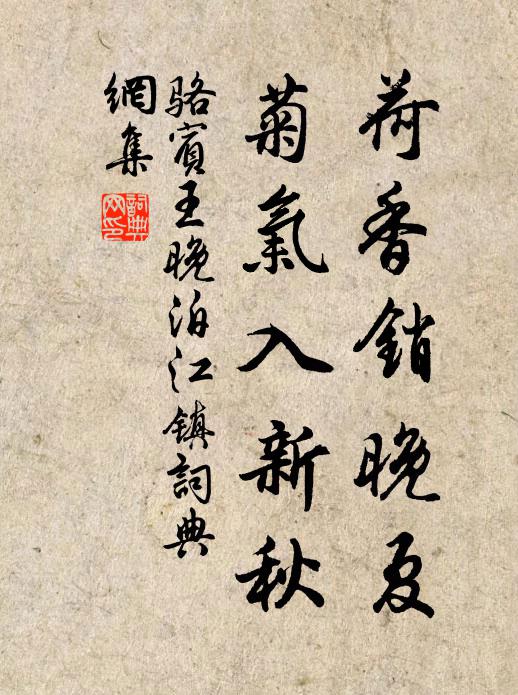 荷香銷晚夏
菊氣入新秋
駱賓王晚泊江鎮詞典
網集
詞典
网印